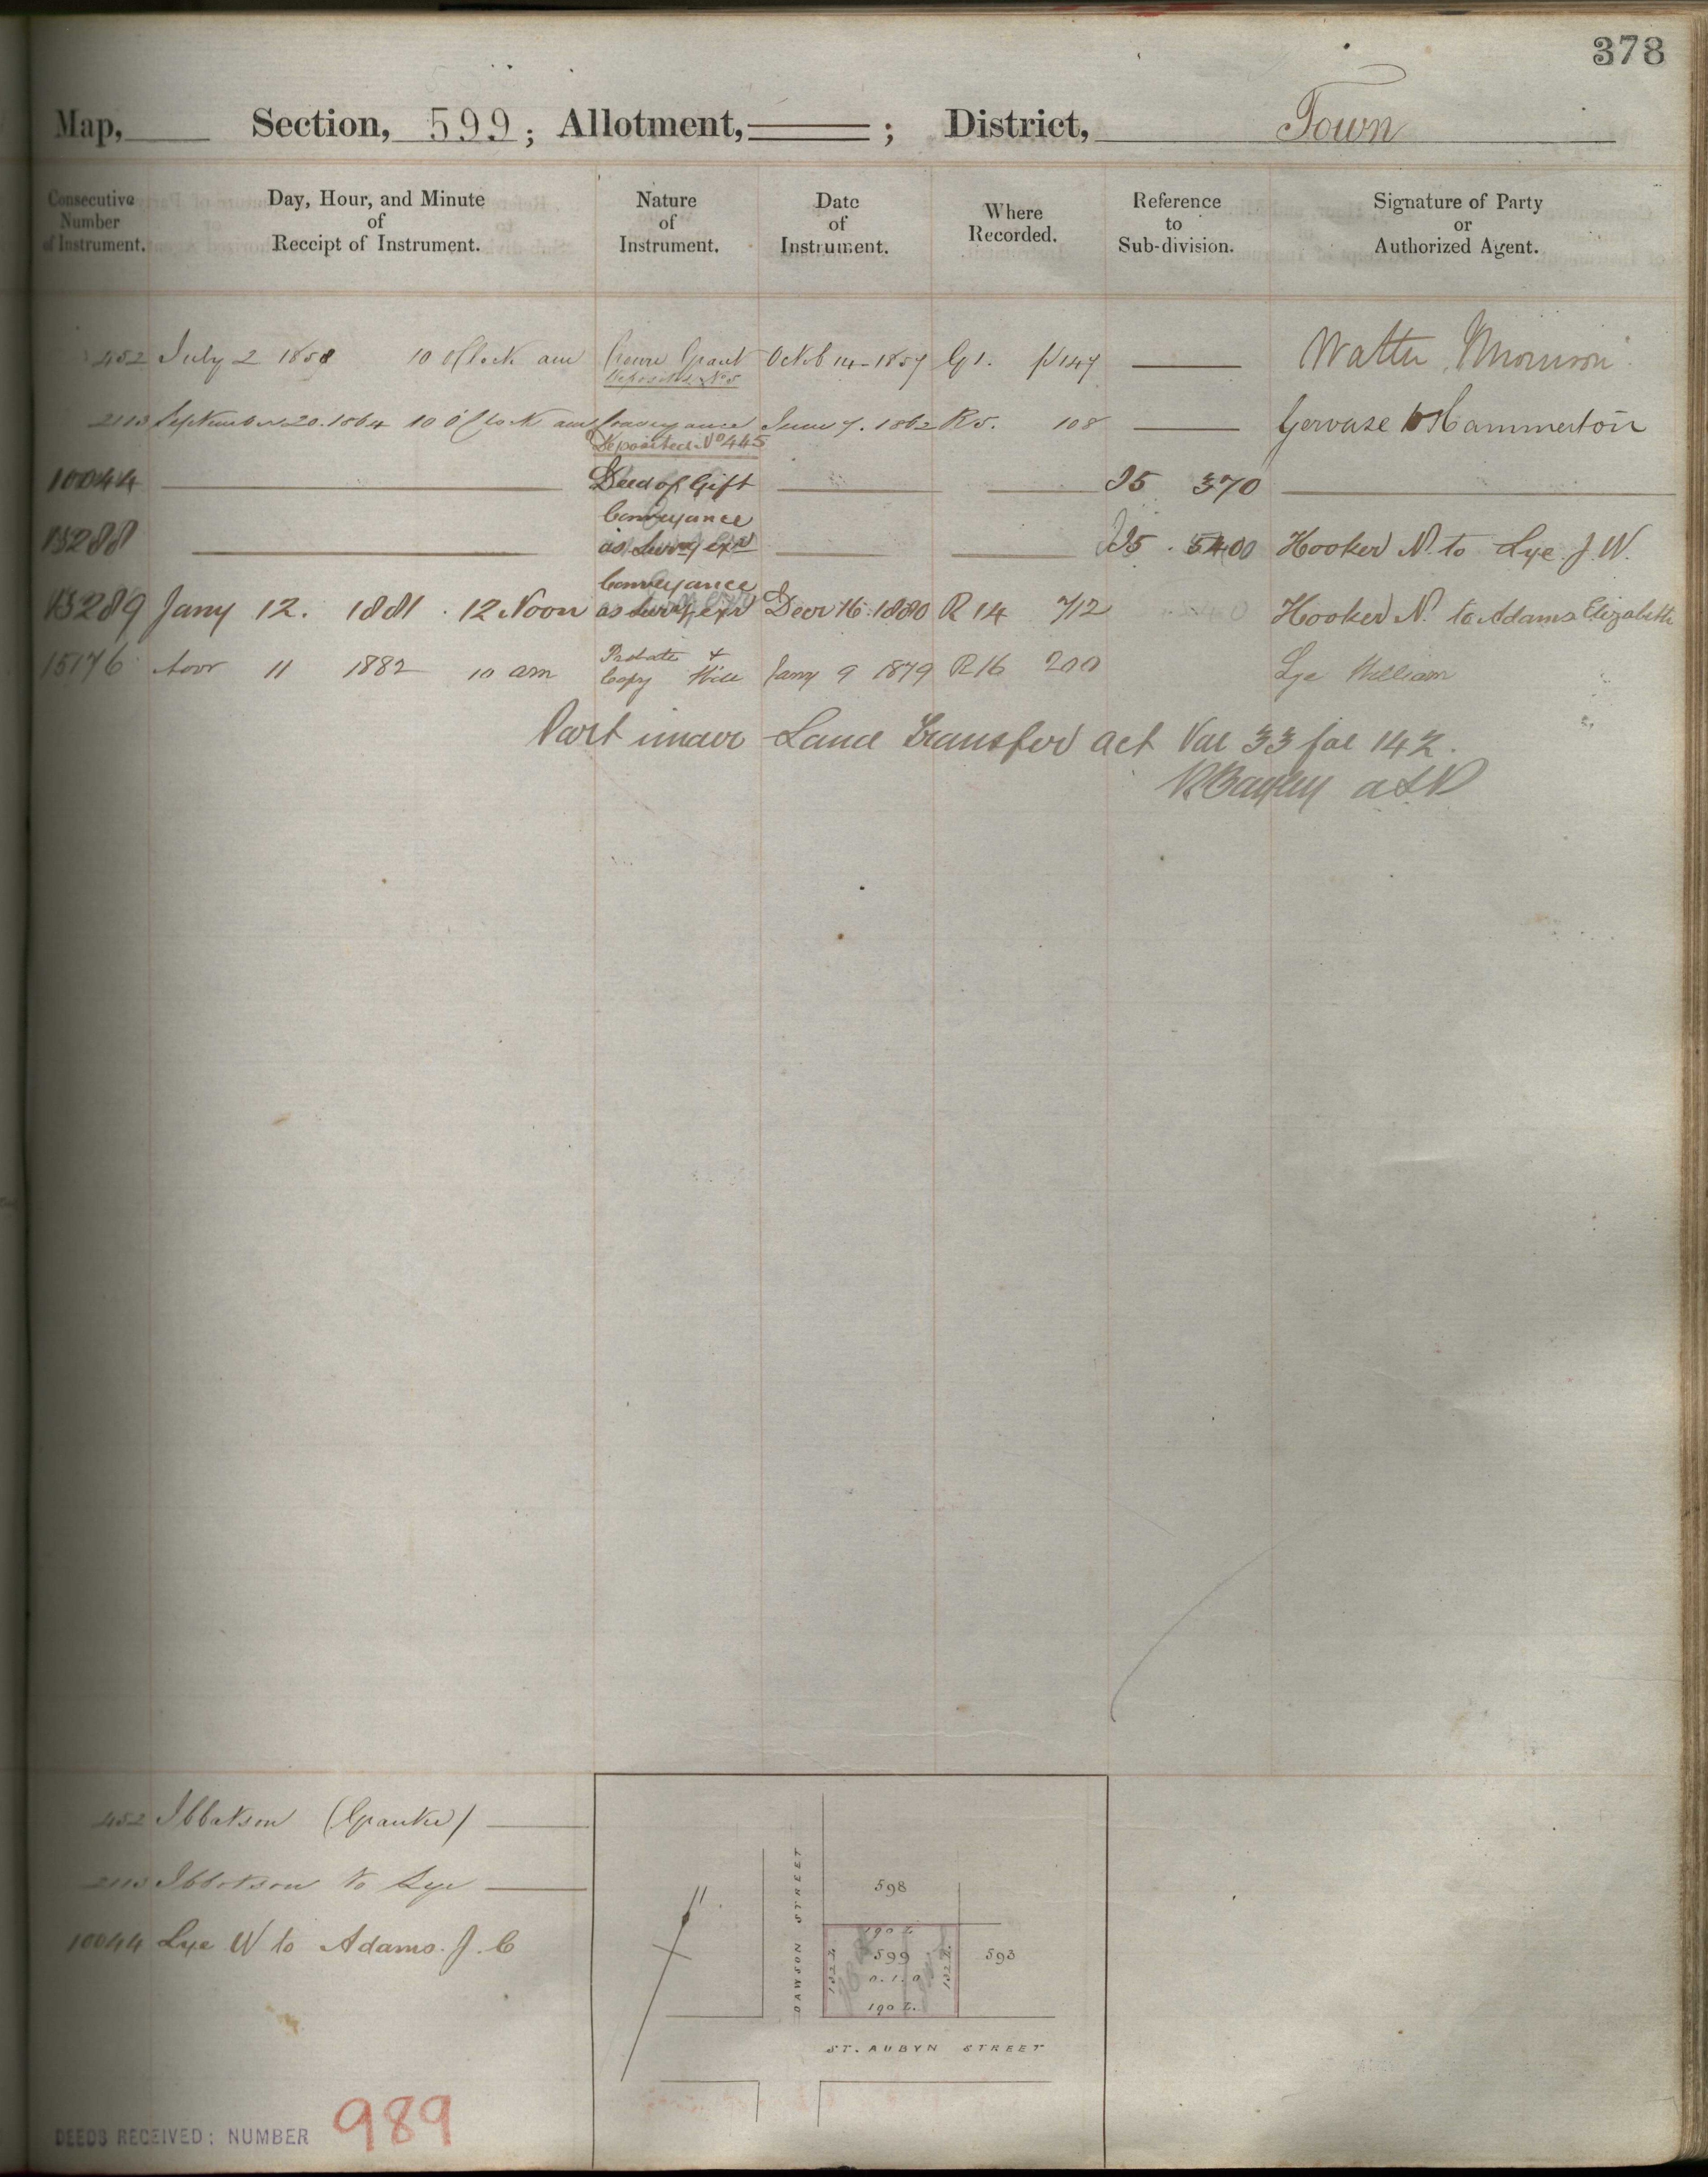 378
Map, Section, 599; Allotment, ; District, Town
Consecutive Number of Instrument. Day, Hour, and Minute of Receipt of Instrument. Nature of Instrument. Date of Instrument. Where Recorded. Reference to Sub-division. Signature of Party or Authorized Agent.
452 July 2 1858 10 o'Clock am Crown Grant Octob 14-1857 G1. p147 Walter Morrison
Deposited No 5
2113 September 20. 1864 10 O'Clock am Conveyance June 7. 1862 R5. 108 Gervase Hammerton
Deposited No 445
10044 Deed of Gift I5 370
Conveyance
13288 as Survg exr I5 . 400 Hooker N. to Lye J. W.
Conveyance
13289 Jany 12. 1881 . 12 Noon as Survg exr Decr 16. 1880 R 14 712 Hooker N. to Adams Elizabeth
Probate &
15176 11 1882 10 am Copy Will Jany 9 1879 R16 200 Lye William
Part under Land Transfer act Vol 33 fol 142.
452 Ibbotson (Grantee)
2113 Ibbotson to Lye
10044 Lye W to Adams. J. C
DAWSON STREET
598
190 L.
132 L. 599 132 L. 593
0.1.0
190 L.
ST. AUBYN STREET
DEEDS RECEIVED: NUMBER 989